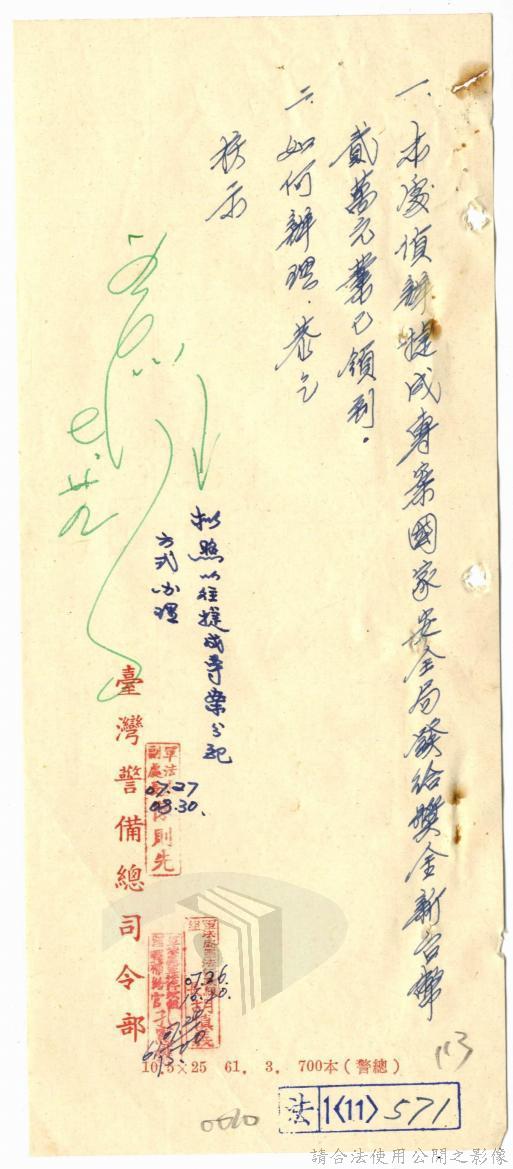 一、本處偵辦捷成專案國家安全局發給獎金新台幣
貳萬元業已領到。
二、如何辦理，恭乞
核示
擬照以往捷成專案分配
方式办理
07.27
08.30.
臺灣警備總司令部
則先
07.26.
10.5×25 61. 3. 700本(警總)
113
法 1<11> 571
請合法使用公開之影像